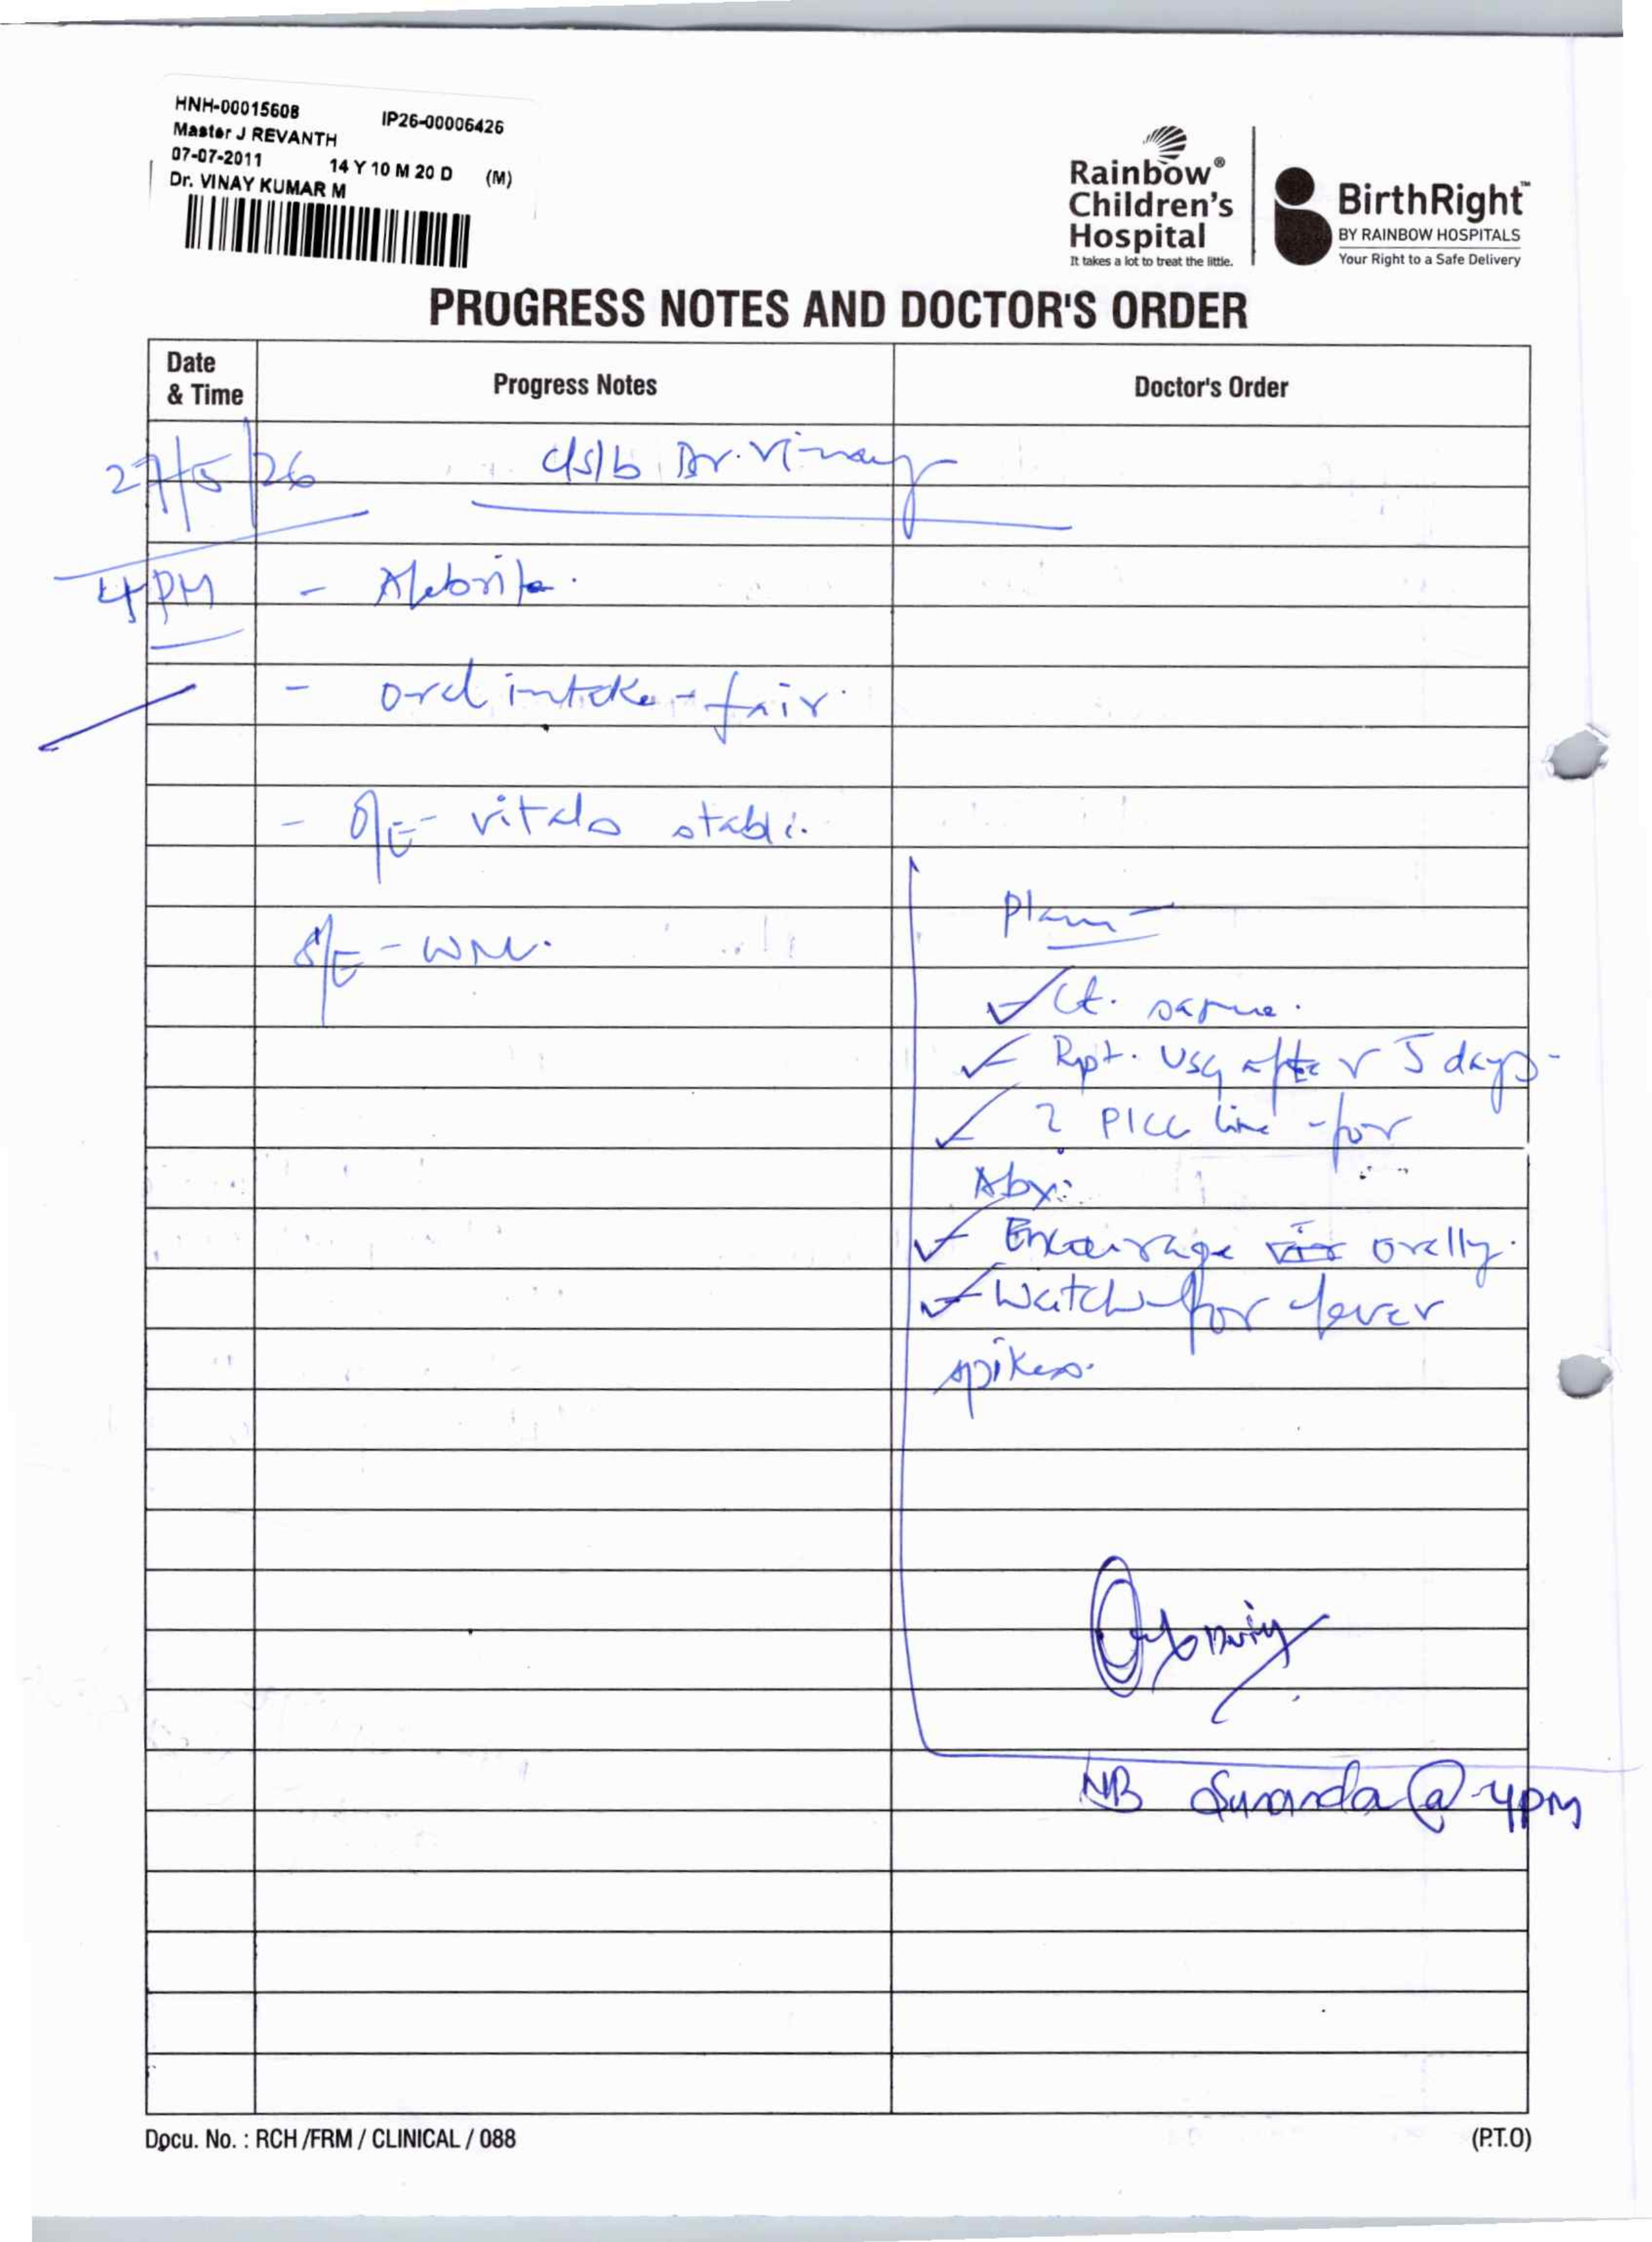 HNH-00015608 IP26-00006426
Master J REVANTH
07-07-2011 14 Y 10 M 20 D (M)
Dr. VINAY KUMAR M
Rainbow®
Children's
Hospital
It takes a lot to treat the little.
BirthRight™
BY RAINBOW HOSPITALS
Your Right to a Safe Delivery
PROGRESS NOTES AND DOCTOR'S ORDER
Date
& Time
Progress Notes
Doctor's Order
27/5/26 c/s/b Dr. Vinay
4 PM - Afebrile.
- oral intake - fair.
- O/E - vitals stable.
Plan -
S/E - WNL.
Ct. same.
Rpt. USG after 5 days -
? PICC line - for
Abx.
Encourage orally.
Watch for fever
spikes.
NB Sunanda @ 4pm
Docu. No. : RCH /FRM / CLINICAL / 088
(P.T.O)